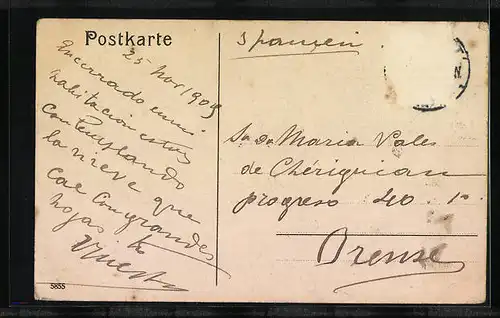 Postkarte
Spanien
25 Nov 1909
Encerrado en mi
habitacion estoy
contemplando
la nieve que
cae con grandes
hojas tu
Sra Da Maria Vales
de Chériguian
progreso 40. 1º
Orense
5855